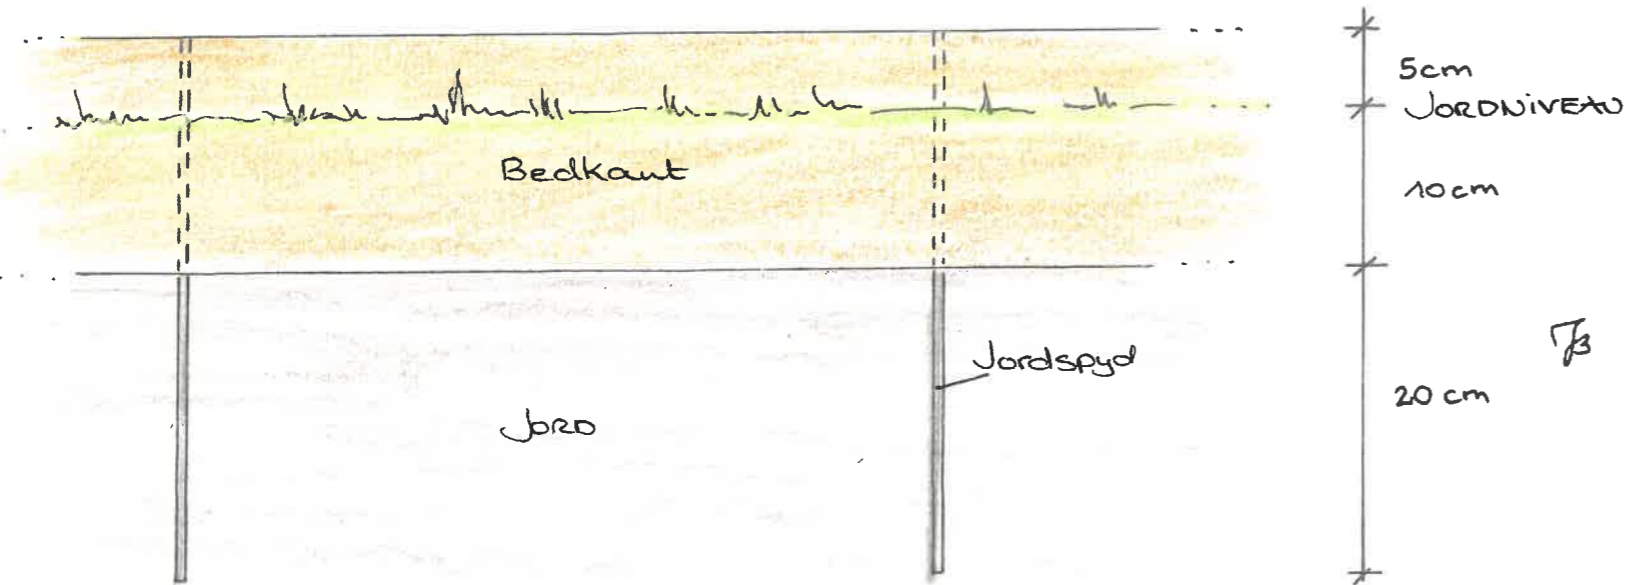 5cm
JORDNIVEAU
Bedkant
10cm
Jordspyd
20 cm
JORD